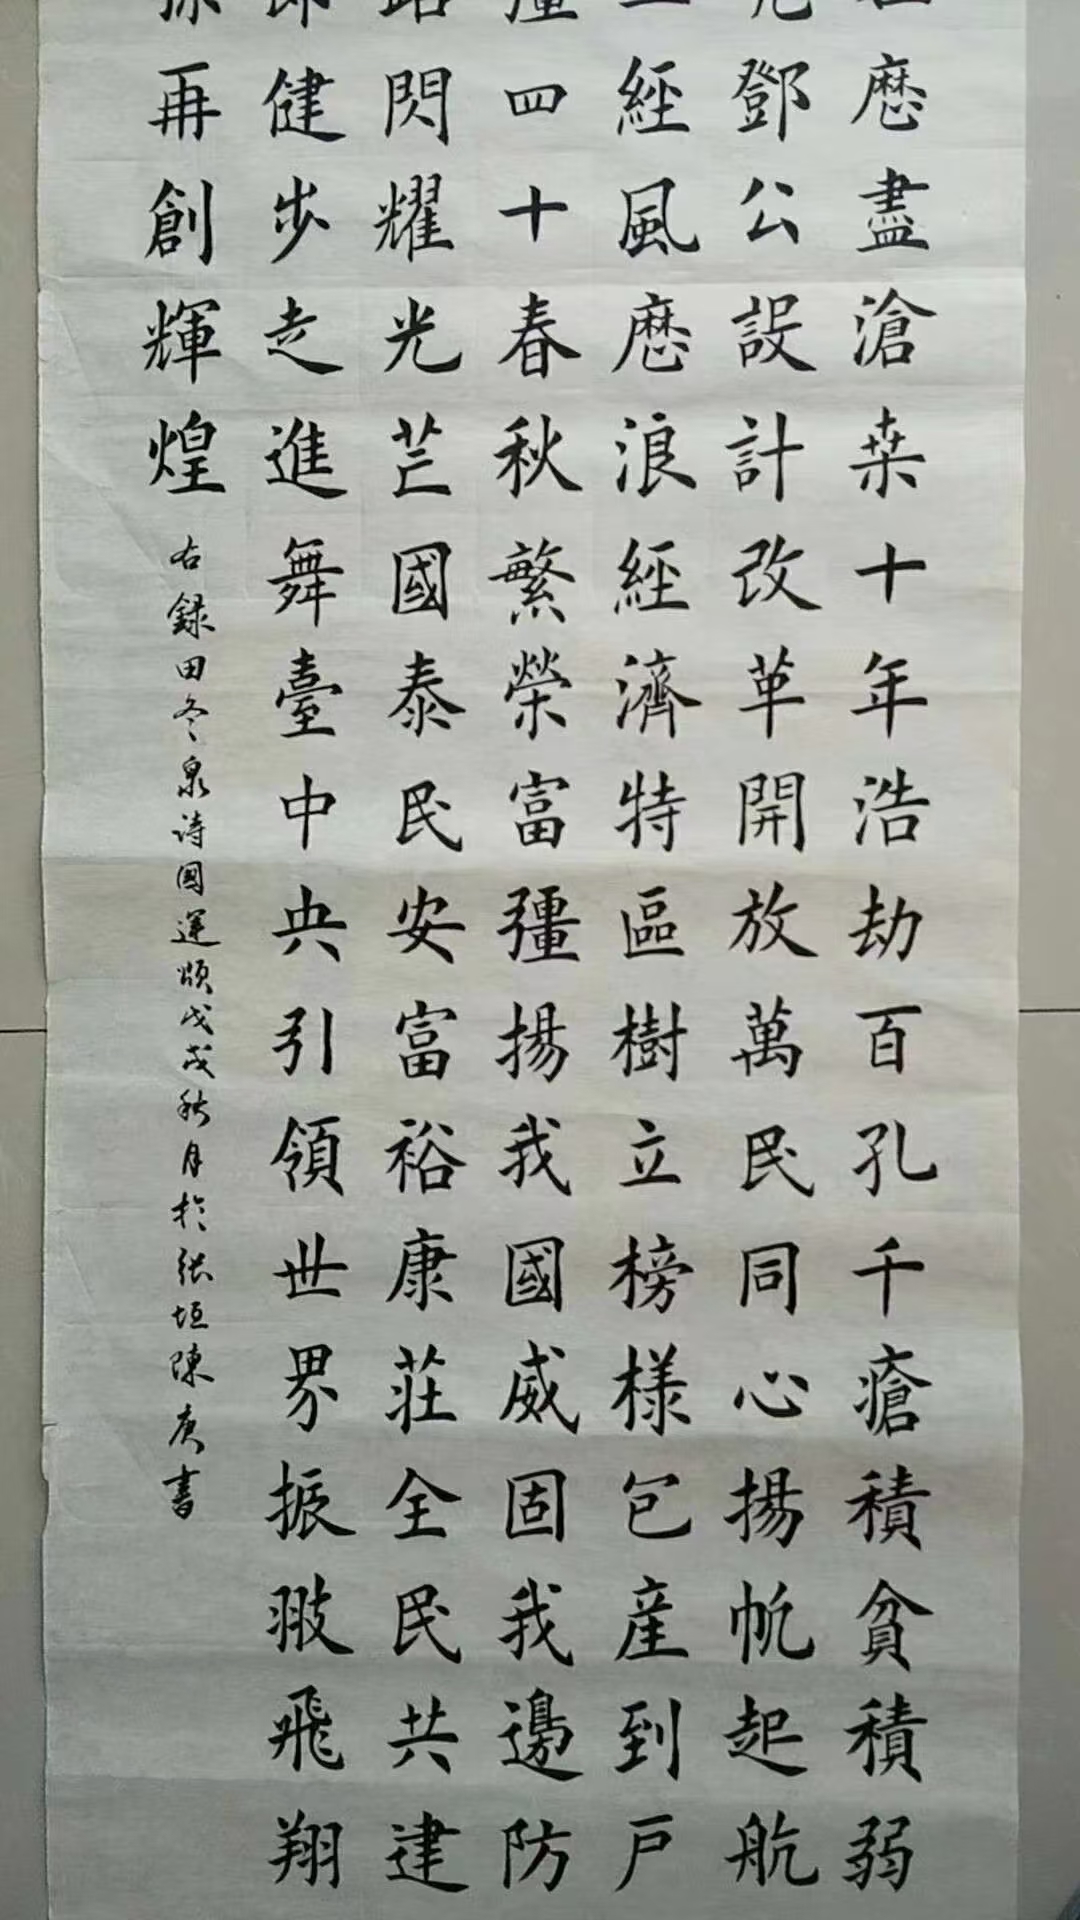 歷盡滄桑十年浩劫百孔千瘡積貧積弱
鄧公設計改革開放萬民同心揚帆起航
經風歷浪經濟特區樹立榜樣包產到戶
四十春秋繁榮富彊揚我國威固我邊防
閃耀光芒國泰民安富裕康莊全民共建
健步走進舞臺中央引領世界振翅飛翔
再創輝煌
右録田冬泉诗國運頌戊戌秋月於張垣陳庚書